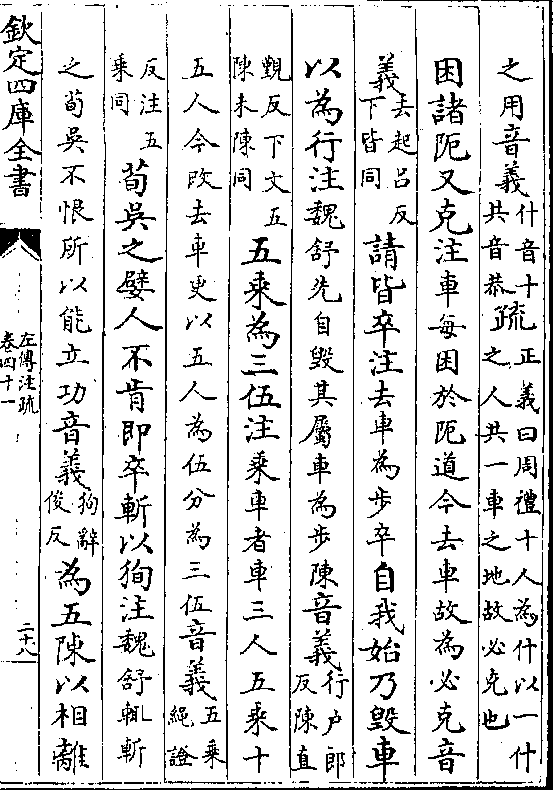 之用音義什音十共音恭疏正義曰周禮十人為什以一什之人共一車之地故必克也
困諸阨又克注車每困於阨道今去車故為必克音
義去起呂反下皆同請皆卒注去車為步卒自我始乃毀車
以為行注魏舒先自毀其屬車為步陳音義行户郎反陳直
覲反下文五陳未陳同五乘為三伍注乘車者車三人五乘十
五人今改去車更以五人為伍分為三伍音義五乘繩證
反注五乘同荀吳之嬖人不肯即卒斬以狥注魏舒輒斬
之荀吳不恨所以能立功音義狥辭俊反為五陳以相離
欽定四庫全書
左傳注疏
卷四十一
二十八